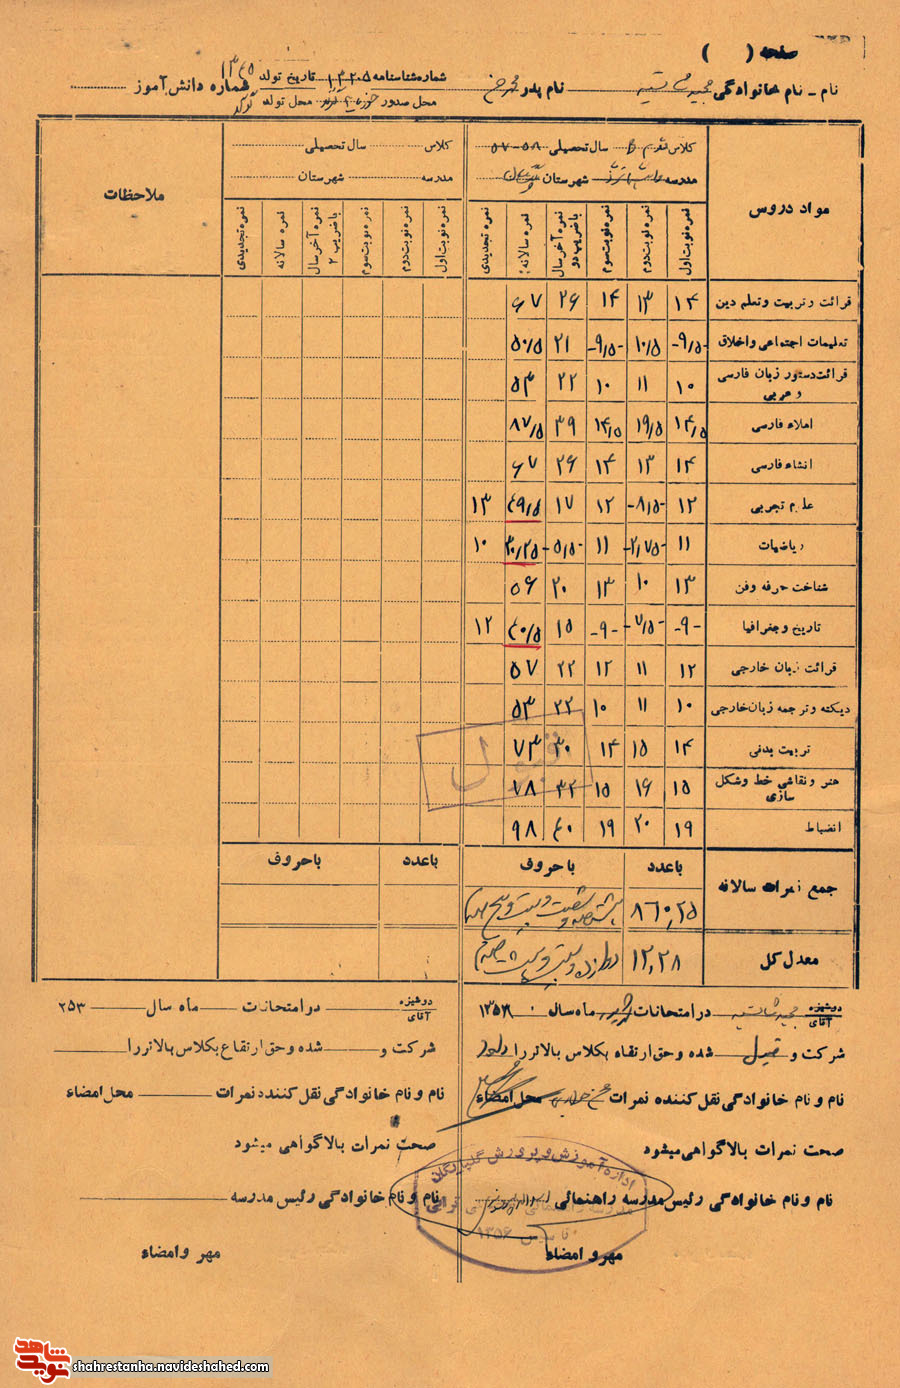 صفحه ( )
نام - نام خانوادگی مجید نام پدر شماره شناسنامه تاریخ تولد ۱۳۴۵
محل صدور محل تولد شماره دانش آموز
مواد دروس
کلاس سال تحصیلی ۵۸-۵۷
مدرسه شهرستان
نمره نوبت اول
نمره نوبت دوم
نمره نوبت سوم
نمره آخر سال با ضریب دو
نمره سالانه
نمره تجدیدی
کلاس سال تحصیلی
مدرسه شهرستان
نمره نوبت اول
نمره نوبت دوم
نمره نوبت سوم
نمره آخر سال با ضریب ۲
نمره سالانه
نمره تجدیدی
ملاحظات
قرائت و تربیت و تعلم دین ۱۴ ۱۳ ۱۴ ۲۶ ۶۷
تعلیمات اجتماعی و اخلاق -۹/۵- ۱۰/۵ -۹/۵- ۲۱ ۵۰/۵
قرائت دستور زبان فارسی و عربی ۱۰ ۱۱ ۱۰ ۲۲ ۵۳
املاء فارسی ۱۴/۵ ۱۹/۵ ۱۴/۵ ۳۹ ۸۷/۵
انشاء فارسی ۱۴ ۱۳ ۱۴ ۲۶ ۶۷
علوم تجربی ۱۲ -۸/۵- ۱۲ ۱۷ ۴۹/۵ ۱۳
ریاضیات ۱۱ -۲/۷۵- ۱۱ -۵/۵- ۳۰/۲۵ ۱۰
شناخت حرفه و فن ۱۳ ۱۰ ۱۳ ۲۰ ۵۶
تاریخ و جغرافیا -۹- -۷/۵- -۹- ۱۵ ۴۰/۵ ۱۲
قرائت زبان خارجی ۱۲ ۱۱ ۱۲ ۲۲ ۵۷
دیکته و ترجمه زبان خارجی ۱۰ ۱۱ ۱۰ ۲۲ ۵۳
تربیت بدنی ۱۴ ۱۵ ۱۴ ۳۰ ۷۳
هنر و نقاشی خط و شکل سازی ۱۵ ۱۶ ۱۵ ۳۲ ۷۸
انضباط ۱۹ ۲۰ ۱۹ ۴۰ ۹۸
قبول
جمع نمرات سالانه
باعدد باحروف باعدد باحروف
۸۶۰/۲۵ هشتصد و شصت و بیست و پنج صدم
معدل کل ۱۲/۲۸ دوازده و بیست و هشت صدم
دوشیزه آقای مجید در امتحانات ماه سال ۱۳۵۸
شرکت و قبول شده و حق ارتقاء بکلاس بالاتر را دارد
نام و نام خانوادگی نقل کننده نمرات محل امضاء
صحت نمرات بالا گواهی میشود
نام و نام خانوادگی رئیس مدرسه راهنمائی
مهر و امضاء
اداره آموزش و پرورش گلپایگان
مدرسه راهنمائی
تأسیس ۱۳۵۶
دوشیزه آقای در امتحانات ماه سال ۲۵۳
شرکت و شده و حق ارتقاع بکلاس بالاتر را
نام و نام خانوادگی نقل کننده نمرات محل امضاء
صحت نمرات بالا گواهی میشود
نام و نام خانوادگی رئیس مدرسه
مهر و امضاء
نوید شاهد
shahrestanha.navideshahed.com